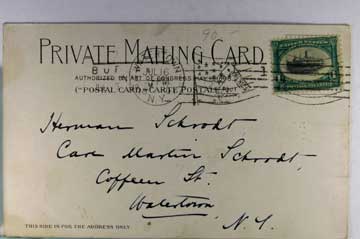 90-
PRIVATE MAILING CARD
BUF
JUL 16
N.Y.
AUTHORIZED BY ACT OF CONGRESS MAY 19, 1898
(POSTAL CARD-CARTE POSTALE)
1
Herman Schrodt
Care Martin Schrodt,
Coffeen St.
Watertown,
N.Y.
THIS SIDE IS FOR THE ADDRESS ONLY.